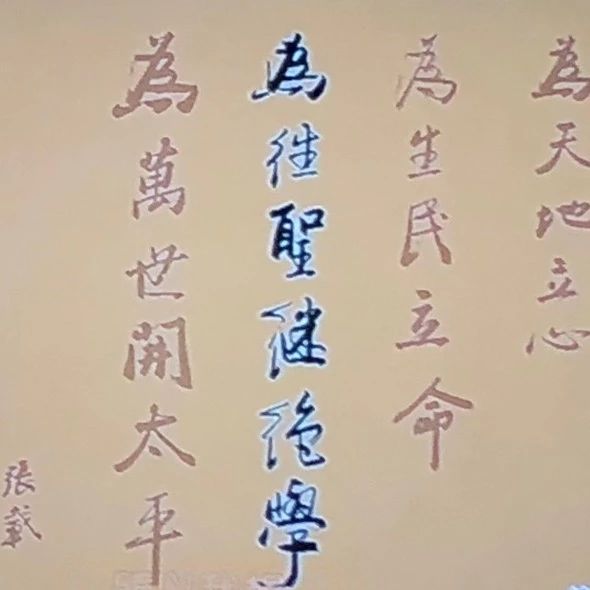 為天地立心
為生民立命
為往聖継絶學
為萬世開太平
張載